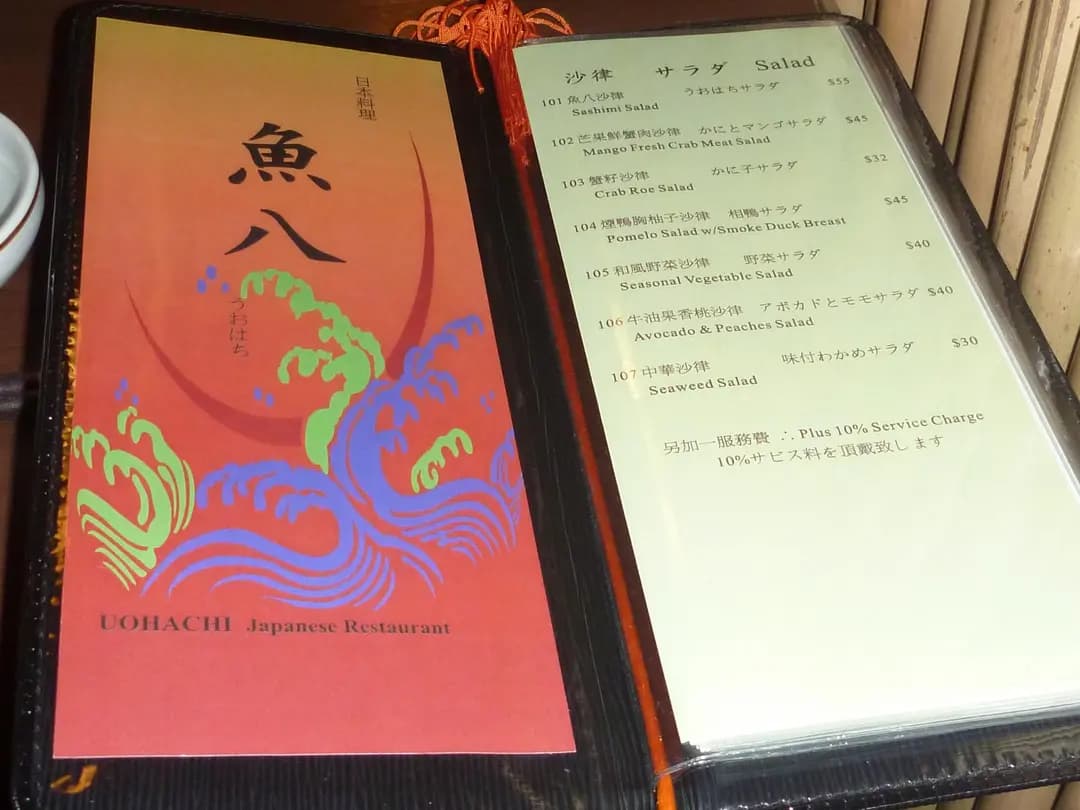 日本料理
魚八
うおはち
UOHACHI Japanese Restaurant
沙律 サラダ Salad
101 魚八沙律 うおはちサラダ $55
Sashimi Salad
102 芒果鮮蟹肉沙律 かにとマンゴサラダ $45
Mango Fresh Crab Meat Salad
103 蟹籽沙律 かに子サラダ $32
Crab Roe Salad
104 煙鴨胸柚子沙律 相鴨サラダ $45
Pomelo Salad w/Smoke Duck Breast
105 和風野菜沙律 野菜サラダ $40
Seasonal Vegetable Salad
106 牛油果香桃沙律 アボカドとモモサラダ $40
Avocado & Peaches Salad
107 中華沙律 味付わかめサラダ $30
Seaweed Salad
另加一服務費 ∴ Plus 10% Service Charge
10%サビス料を頂戴致します